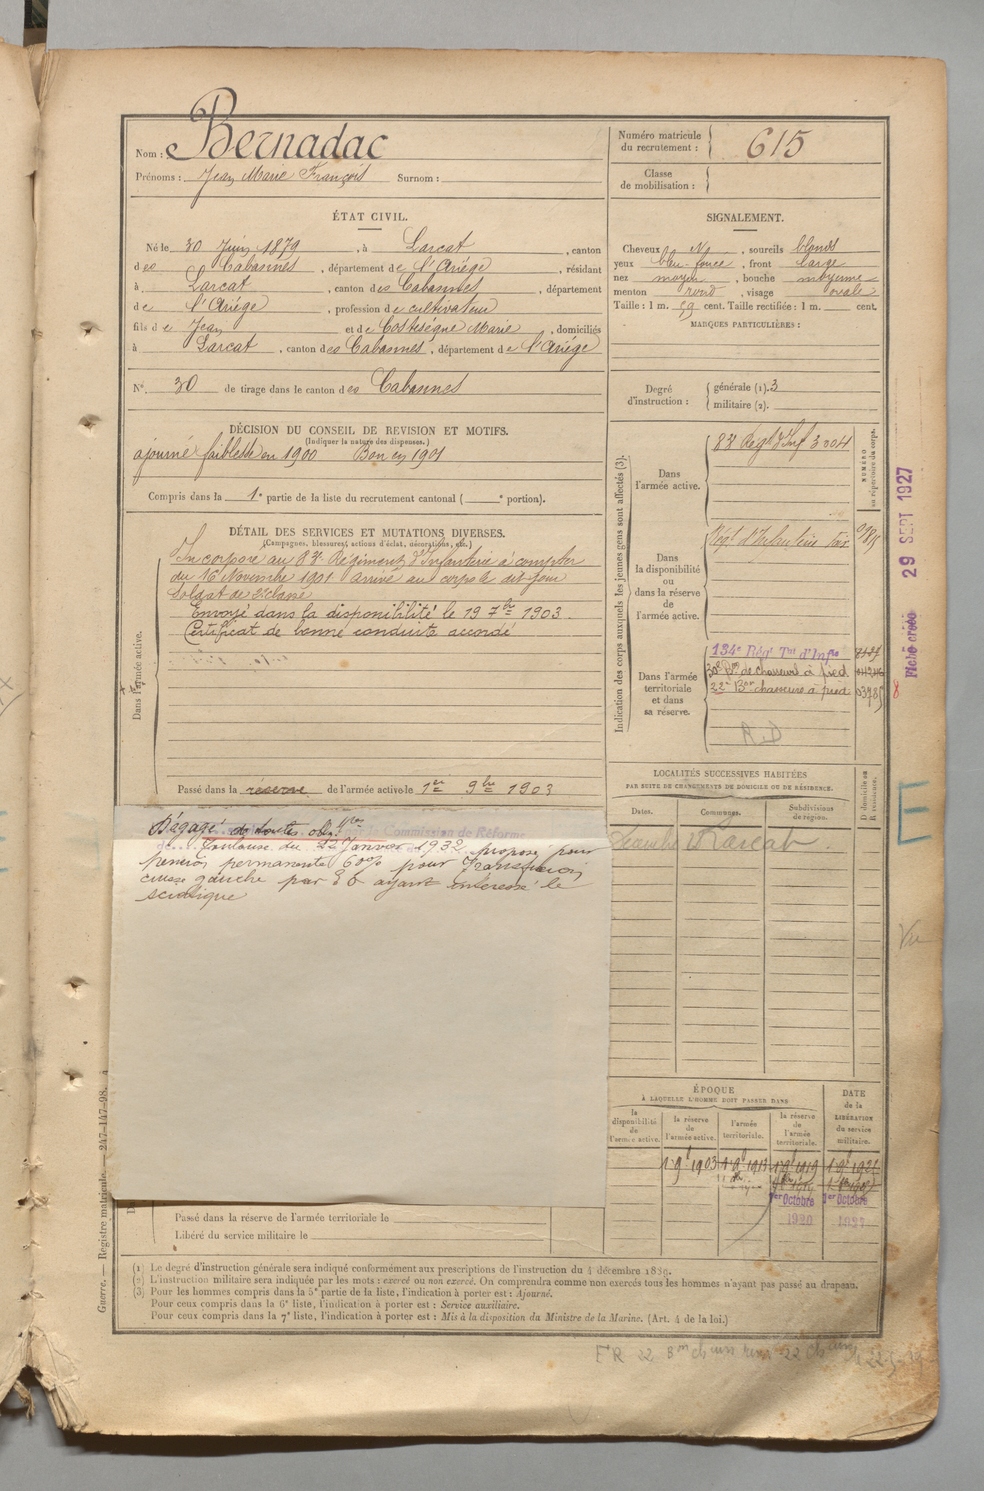 Nom : Bernadac
Prénoms : Jean Marie François Surnom :
Numéro matricule du recrutement : 615
Classe de mobilisation :
ÉTAT CIVIL.
Né le 30 Juin 1879, à Larcat, canton
des Cabannes, département de l'Ariége, résidant
à Larcat, canton des Cabannes, département
de l'Ariége, profession de cultivateur
fils de Jean et de Costeségue Marie, domiciliés
à Larcat, canton des Cabannes, département de l'Ariége
N° 30 de tirage dans le canton des Cabannes
SIGNALEMENT.
Cheveux, sourcils blonds
yeux bleu-foncé, front large
nez moyen, bouche moyenne
menton rond, visage ovale
Taille : 1 m. 59 cent. Taille rectifiée : 1 m. cent.
MARQUES PARTICULIÈRES :
Degré d'instruction : générale (1). 3
militaire (2).
DÉCISION DU CONSEIL DE REVISION ET MOTIFS.
(Indiquer la nature des dispenses.)
ajourné faiblesse en 1900 Bon en 1901
Compris dans la 1e partie de la liste du recrutement cantonal ( e portion).
DÉTAIL DES SERVICES ET MUTATIONS DIVERSES.
(Campagnes, blessures, actions d'éclat, décorations, etc.)
Dans l'armée active.
Incorporé au 83e Régiment d'Infanterie à compter
du 16 Novembre 1901 arrivé au corps le dit jour
soldat de 2e classe
Envoyé dans la disponibilité le 19 7bre 1903.
Certificat de bonne conduite accordé
Passé dans la réserve de l'armée active le 1er 9bre 1903
Dégagé de toutes obl. mres
par la Commission de Réforme
de Toulouse du Janvier 1932 proposé pour
pension permanente 60% pour
cuisse gauche par E O ayant intéressé le
sciatique
Passé dans la réserve de l'armée territoriale le
Libéré du service militaire le
Indication des corps auxquels les jeunes gens sont affectés (3).
NUMÉRO au répertoire du corps.
Dans l'armée active. 83e Régt d'Inf 3004
Dans la disponibilité ou dans la réserve de l'armée active. Régt d'Infanterie
Dans l'armée territoriale et dans sa réserve.
134e Régt Tal d'Infie
30e Bon de chasseurs à pied
22e Bon chasseurs à pied
R.D
Fiche créée 29 SEPT 1927
8
LOCALITÉS SUCCESSIVES HABITÉES
PAR SUITE DE CHANGEMENTS DE DOMICILE OU DE RÉSIDENCE.
Dates. Communes. Subdivisions de région. D domicile ou R résidence.
Larcat
E
Vu
ÉPOQUE
À LAQUELLE L'HOMME DOIT PASSER DANS
la disponibilité de l'armée active. la réserve de l'armée active. l'armée territoriale. la réserve de l'armée territoriale. DATE de la LIBÉRATION du service militaire.
1 9bre 1903 1 9bre 1913 1 9bre 1919 1 9bre
1er Octobre 1er Octobre
1920
Guerre. — Registre matricule. — 247-147-98.
(1) Le degré d'instruction générale sera indiqué conformément aux prescriptions de l'instruction du 4 décembre 1889.
(2) L'instruction militaire sera indiquée par les mots : exercé ou non exercé. On comprendra comme non exercés tous les hommes n'ayant pas passé au drapeau.
(3) Pour les hommes compris dans la 5e partie de la liste, l'indication à porter est : Ajourné.
Pour ceux compris dans la 6e liste, l'indication à porter est : Service auxiliaire.
Pour ceux compris dans la 7e liste, l'indication à porter est : Mis à la disposition du Ministre de la Marine. (Art. 4 de la loi.)